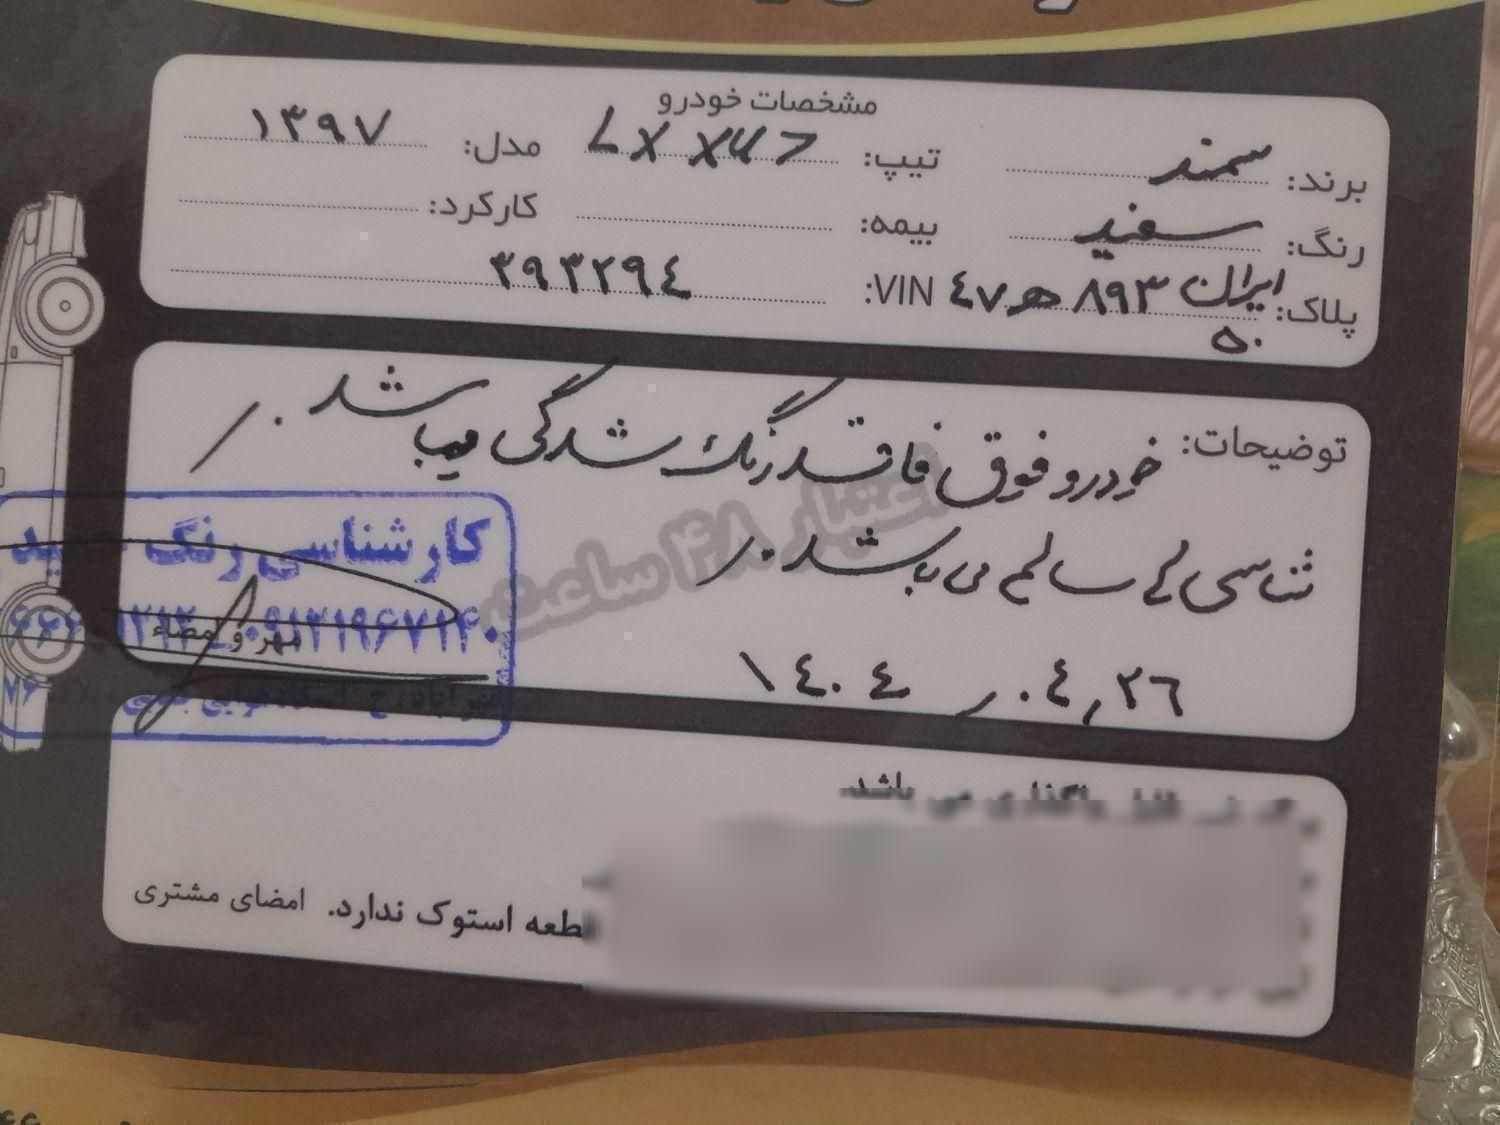 مشخصات خودرو
برند: سمند تیپ: LX XU7 مدل: ۱۳۹۷
رنگ: سفید بیمه: کارکرد:
پلاک: ایران ۵۰ ۸۹۳ هـ ۴۷ VIN: ۳۹۳۲۹۴
توضیحات: خودرو فوق فاقد رنگ شدگی میباشد ./
شاسی ها سالم می باشد ./
۱۴۰۴ ر ۰۴ ر ۲۶
اعتبار ۴۸ ساعت
کارشناسی رنگ
۰۹۱۲۱۹۶۷۱۴۰
مهر و امضاء
واگذاری می باشد.
قطعه استوک ندارد. امضای مشتری